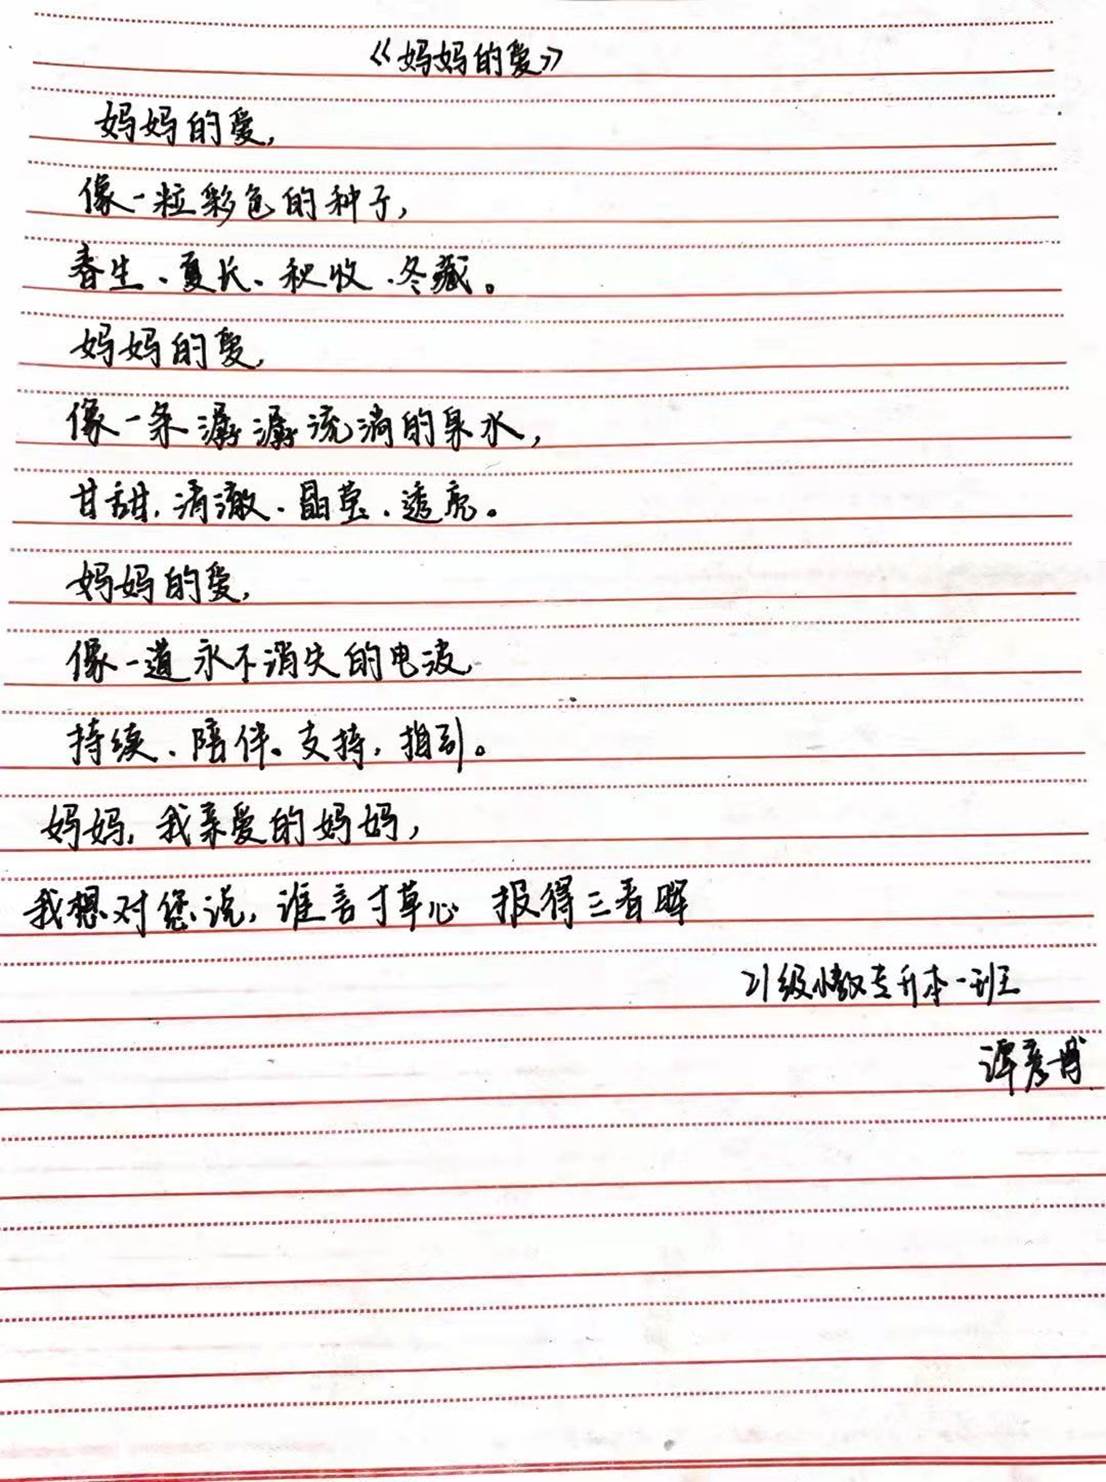 《妈妈的爱》
妈妈的爱,
像一粒彩色的种子,
春生、夏长、秋收、冬藏。
妈妈的爱,
像一条潺潺流淌的泉水,
甘甜、清澈、晶莹、透亮。
妈妈的爱,
像一道永不消失的电波,
持续、陪伴、支持、指引。
妈妈,我亲爱的妈妈,
我想对您说,谁言寸草心 报得三春晖
21级小教专升本一班
谭彦博